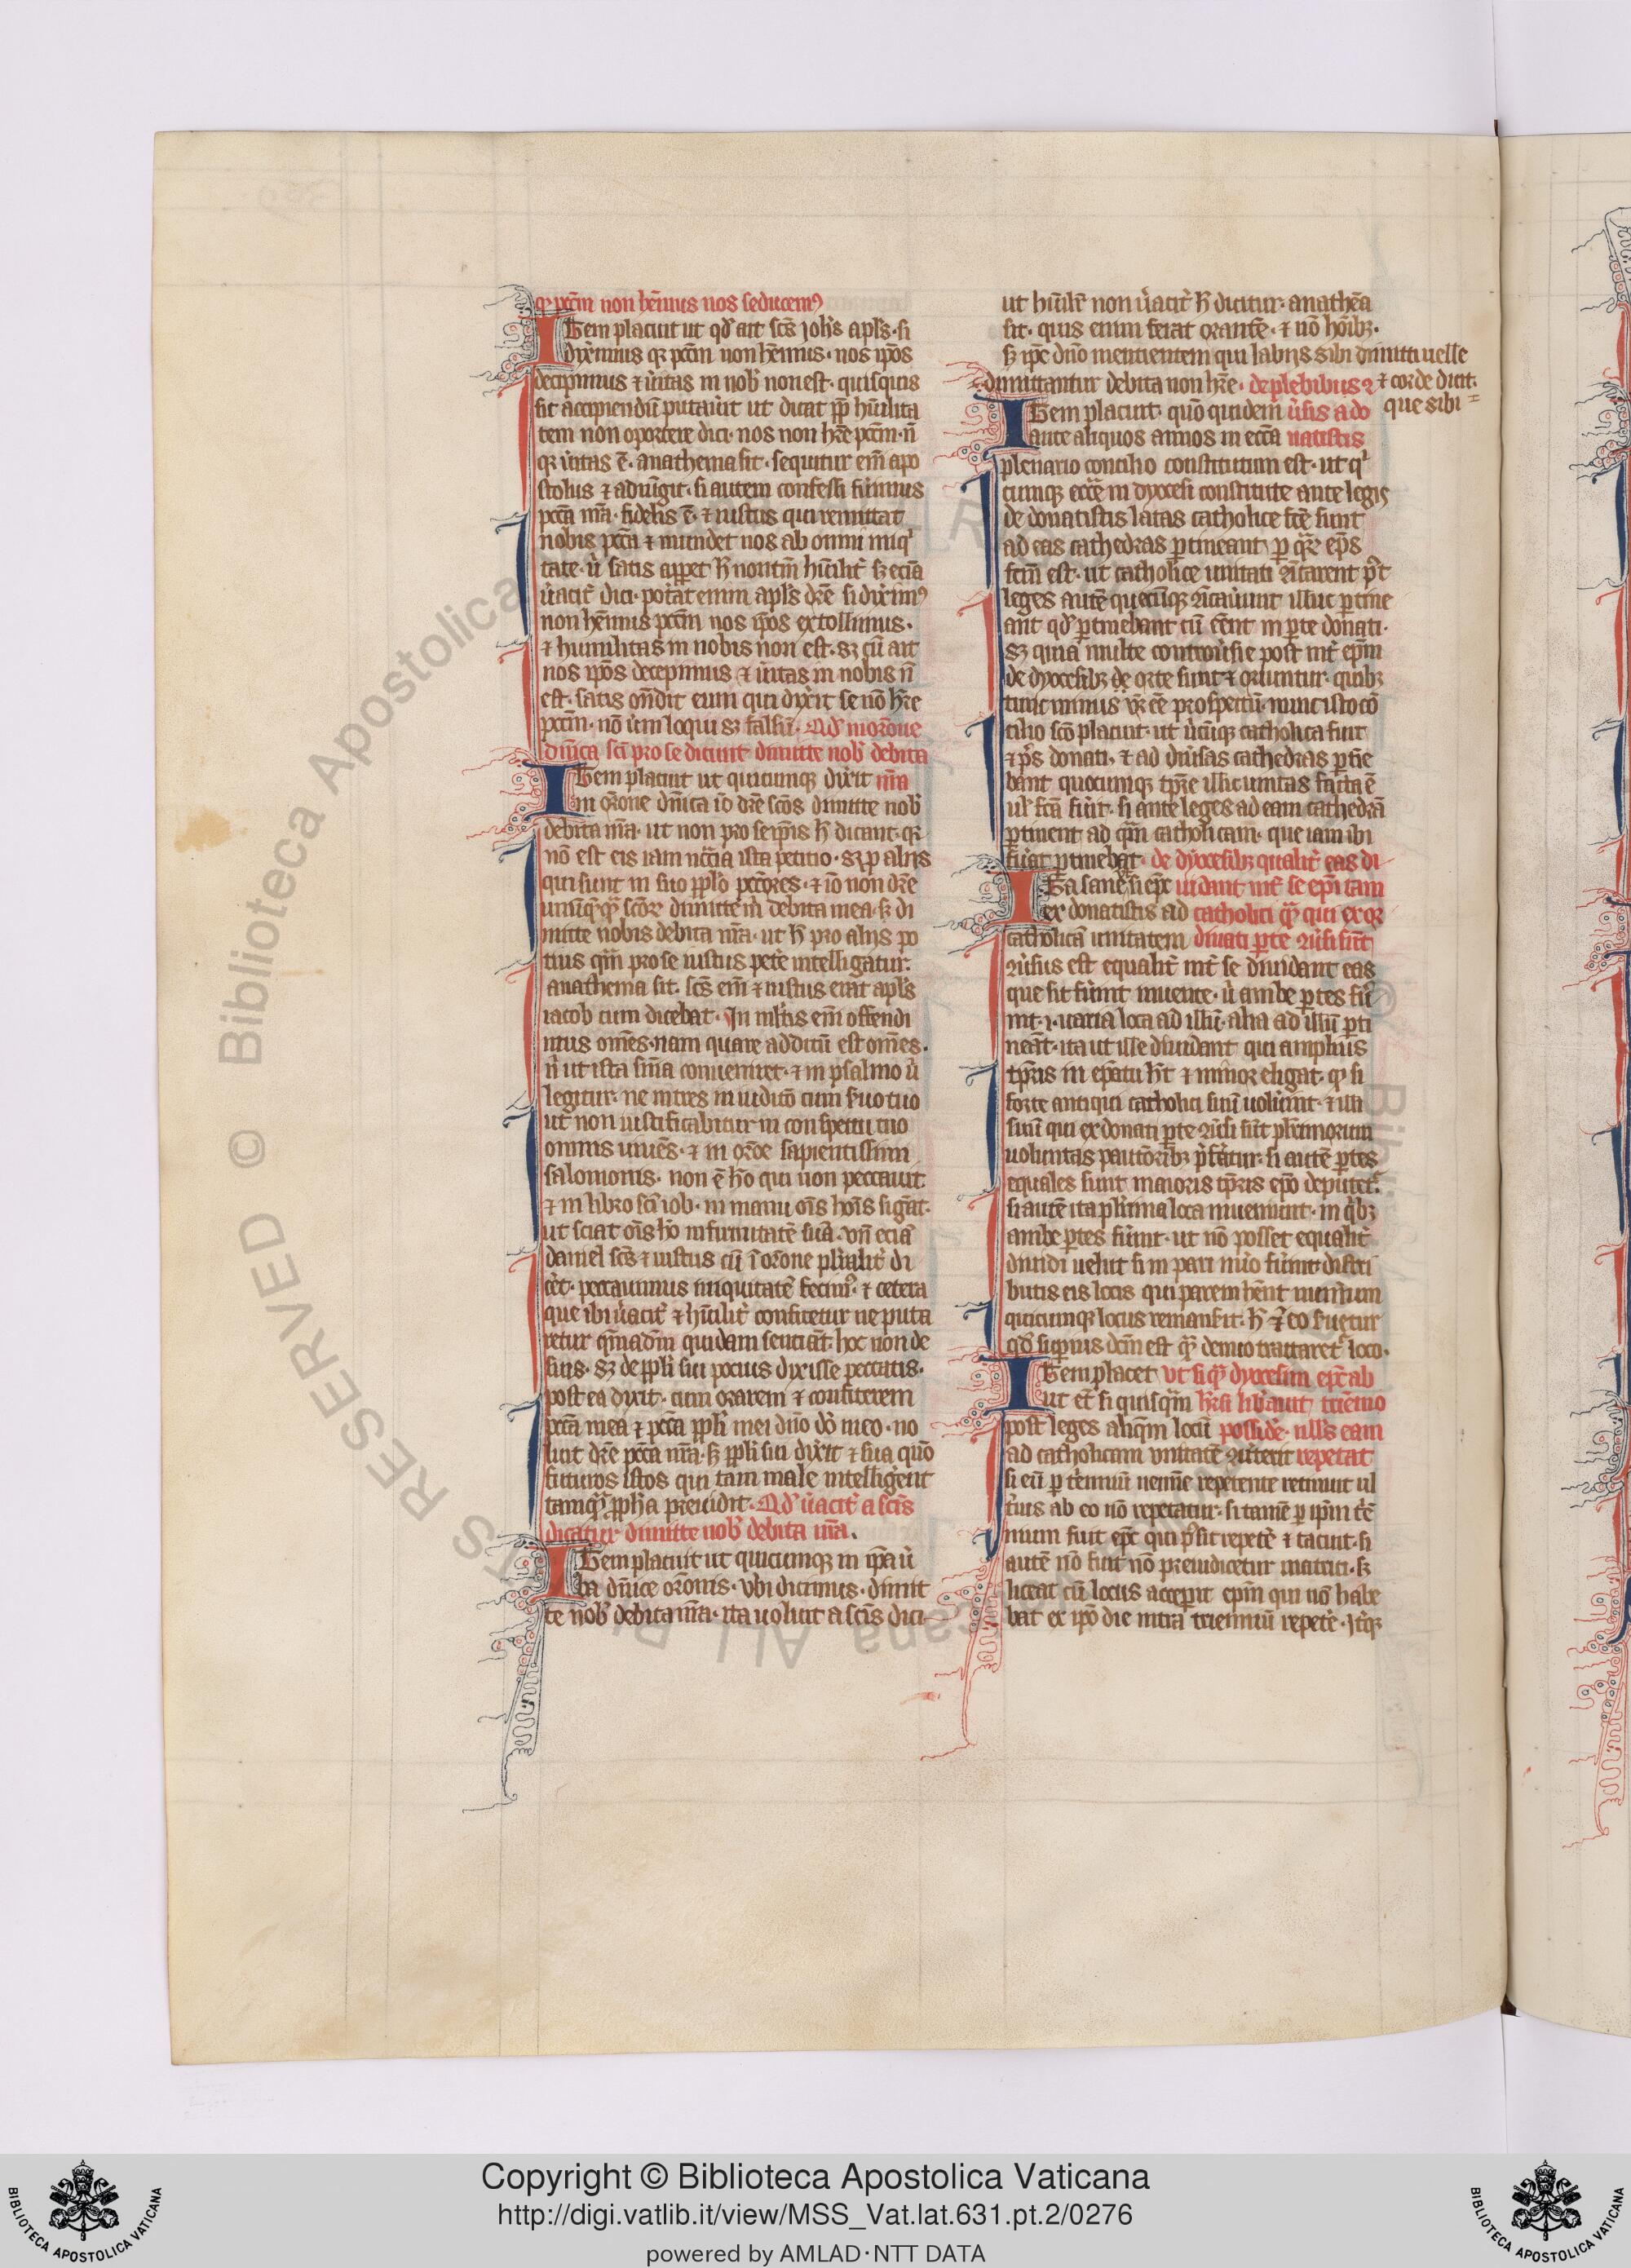 qr pctm non hem̄us nos seducem⁹
Item placuit ut qd̓ ait sc̄s joh̓s apl̓s· si
dix̓imus qr pctm̄ non hem̄us· nos ip̄os
decipimus ⁊ u̓itas in nob̓ non est· quisquis
sic accipiendū putau̓it ut dicat pp̄ hu̓ilita
tem non oportere dici· nos non hr̄e pctm̄· n̄
qr u̓itas ē· anathema sit· sequitur em̄ apo
stolus ⁊ adiu̓git· si autem confessi fu̓imus
pctā nr̄a· fidelis ē· ⁊ iustus qui remittat
nobis pctā ⁊ mundet nos ab omni iniq̓
tate· u̓ satis appet h̄ non tm̄ hu̓ilit̓ sꝫ eciā
u̓acit̓ dici· pot̓at enim apl̓s dr̄e si dix̓im⁹
non hem̄us pctm̄ nos ip̄os extollimus·
⁊ humilitas in nobis non est· sꝫ cū ait
nos ip̄os decepimus ⁊ u̓itas in nobis n̄
est· satis on̄dit eum qui dix̓it se nō hr̄e
pctm̄· nō u̓um loqui sꝫ falsū· Qd̓ in or̄one
dn̄ica sc̄i pro se dicunt dimitte nob̓ debita
Item placuit ut quicumqꝫ dix̓it nr̄a
in or̄one dn̄ica iō dr̄e sc̄os dimitte nob̓
debita nr̄a· ut non pro seip̄is h̄ dicant· qr
nō est eis iam nc̄cia ista peticio· sꝫ p alijs
qui sunt in suo pp̄lo pctōres· ⁊ iō non dr̄e
dimitte m̓ debita mea· sꝫ di
mitte nobis debita nr̄a· ut h̄ pro alijs po
tius qm̄ pro se iustus pet̓e intelligatur·
anathema sit· sc̄s em̄ ⁊ iustus erat apl̓s
iacob cum dicebat· In mltis em̄ offendi
mus om̄es· nam quare additū est om̄es·
n̄ ut ista sn̄ia conueniret· ⁊ in psalmo u̓
legitur· ne intres in iudicō cum s̓uo tuo
ut non iustificabitur in conspectu tuo
omnis uiuēs· ⁊ in or̄one sapientissimi
salomonis· non ē hō qui non peccauit·
⁊ in libro sc̄i iob· in manu ōis hoīs signat·
ut sciat ōis hō infirmitatē suā· vn̄ eciā
daniel sc̄s ⁊ iustus cū ī or̄one plu̓alit̓ di
c̓et· peccauimus iniquitatē fecim⁹ ⁊ cetera
que ibi u̓acit̓ ⁊ hu̓ilit̓ confitetur ne puta
retur qm̄adm̄ quidam senciāt· hoc non de
suis· sꝫ de pp̄li sui pocius dixisse peccatis·
postea dixit· cum orarem ⁊ confiterem
pctā mea ⁊ pctā pp̄li mei dn̄o dō meo· no
luit dr̄e pctā nr̄a· sꝫ pp̄li sui dix̓it ⁊ sua quō
futuros istos qui tam male intelligerent
tamq̓ pph̄a preuidit· Qd̓ u̓acit̓ a sc̄is
dicatur dimitte nob̓ debita nr̄a·
Item placuit ut quicumqꝫ in ip̄a u̓
ba dn̄ice or̄onis· vbi dicimus· dimit
te nob̓ debita nr̄a· ita uoluit a sc̄is dici
ut hu̓ilit̓ non u̓acit̓ h̄ dicitur· anathēa
sit· quis enim ferat orantē· ⁊ nō hōibꝫ·
sꝫ ip̄e dn̄o mentientem qui labijs sibi dimitti uelle
dimittantur debita non hr̄e· de plebibus ꝛ ⁊ corde dicit·
Item placuit· quō quidem u̓sis a do que sibi =
ante aliquos annos in eccā natistis
plenario concilio constitutum est· ut q̓
cumqꝫ ecc̄e in dyocesi constitute ante leges
de donatistis latas catholice fc̄e sunt
ad eas cathedras ptineant p qr̄ ep̄s
fcm̄ est· ut catholice unitati pt
leges autē quecūqꝫ illuc ptine
ant qd̓ ptinebant cū eēnt in pte donati·
sꝫ quia multe controu̓sie post int̓ ep̄m
de dyocesibꝫ de orte sunt ⁊ oriuntur· quibꝫ
tunc minus vr̄ eē prospectū· nunc isto cō
cilio scō placuit· ut u̓cūqꝫ catholica fuit
⁊ ps̓ donati· ⁊ ad diu̓sas cathedras ptīe
bant quocumqꝫ tpr̄e illic unitas facta ē
ul̓ fcā fu̓it· si ante leges ad eam cathedrā
ptineat ad qm̄ catholicam· que iam ibi
fu̓at ptinebat· de dyocesibꝫ qualit̓ eas di
Ita sane si epē uidant int̓ se ep̄i tam
ex donatistis ad catholici q̓ qui ex or
catholicā unitatem diuati pte ꝛu̓si sūt
ꝛu̓sus est equalit̓ int̓ se diuidant eas
que sic fu̓int inuente· u̓ ambe ptes fu̓
int· .i. uaria loca ad illū· alia ad illū pti
neāt· ita ut ille diuidant qui amplius
tpr̄is in ep̄atu h̄t ⁊ minor eligat· qr si
forte antiqui catholici sunt uolu̓int· ⁊ illi
sunt qui ex donati pte ꝛu̓si sūt pl̓rimorum
uoluntas paucioribꝫ pf̓atur· si autē ptes
equales sunt maioris tpr̄is ep̄o deputet̓·
si autē ita pl̓rima loca inueniunt· in q̓bꝫ
ambe ptes fu̓int· ut nō posset equalit̓
diuidi uelut si in pari nūo fu̓int distri
butis eis locis qui parem hēnt numerum
quicumqꝫ locus remanserit· h̄ ⁊ eo suetur
qd̓ sup̄ius dcm̄ est qr̄ denuo tractaret̓ loco·
Item placet Vt si q̓s dyocesim epē ab
ut et̄ si quisq̓m hr̄si lib̓auit triēnnio
post leges aliqm̄ locū posside· nll̓s eam
ad catholicam vnitatē ꝛu̓terit repetat
si eū p trēnniū nemīe repetente retinuit ul
t̓ius ab eo nō repetatur· si tamē p ip̄m t̓ē
nium fuit epē qui p̄ sit repet̓e ⁊ tacuit· si
autē nō fuit nō preiudicetur matrici· sꝫ
liceat cū locus acceperit ep̄m qui nō habe
bat ex ip̄o die intra trienniū repet̓e· Itqꝫ
Copyright © Biblioteca Apostolica Vaticana
http://digi.vatlib.it/view/MSS_Vat.lat.631.pt.2/0276
powered by AMLAD·NTT DATA
BIBLIOTECA APOSTOLICA VATICANA
BIBLIOTECA APOSTOLICA VATICANA
© Biblioteca Apostolica Vaticana ALL RIGHTS RESERVED